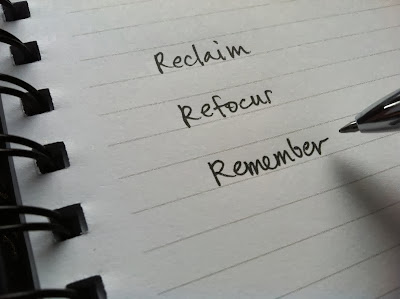 Reclaim
Refocus
Remember